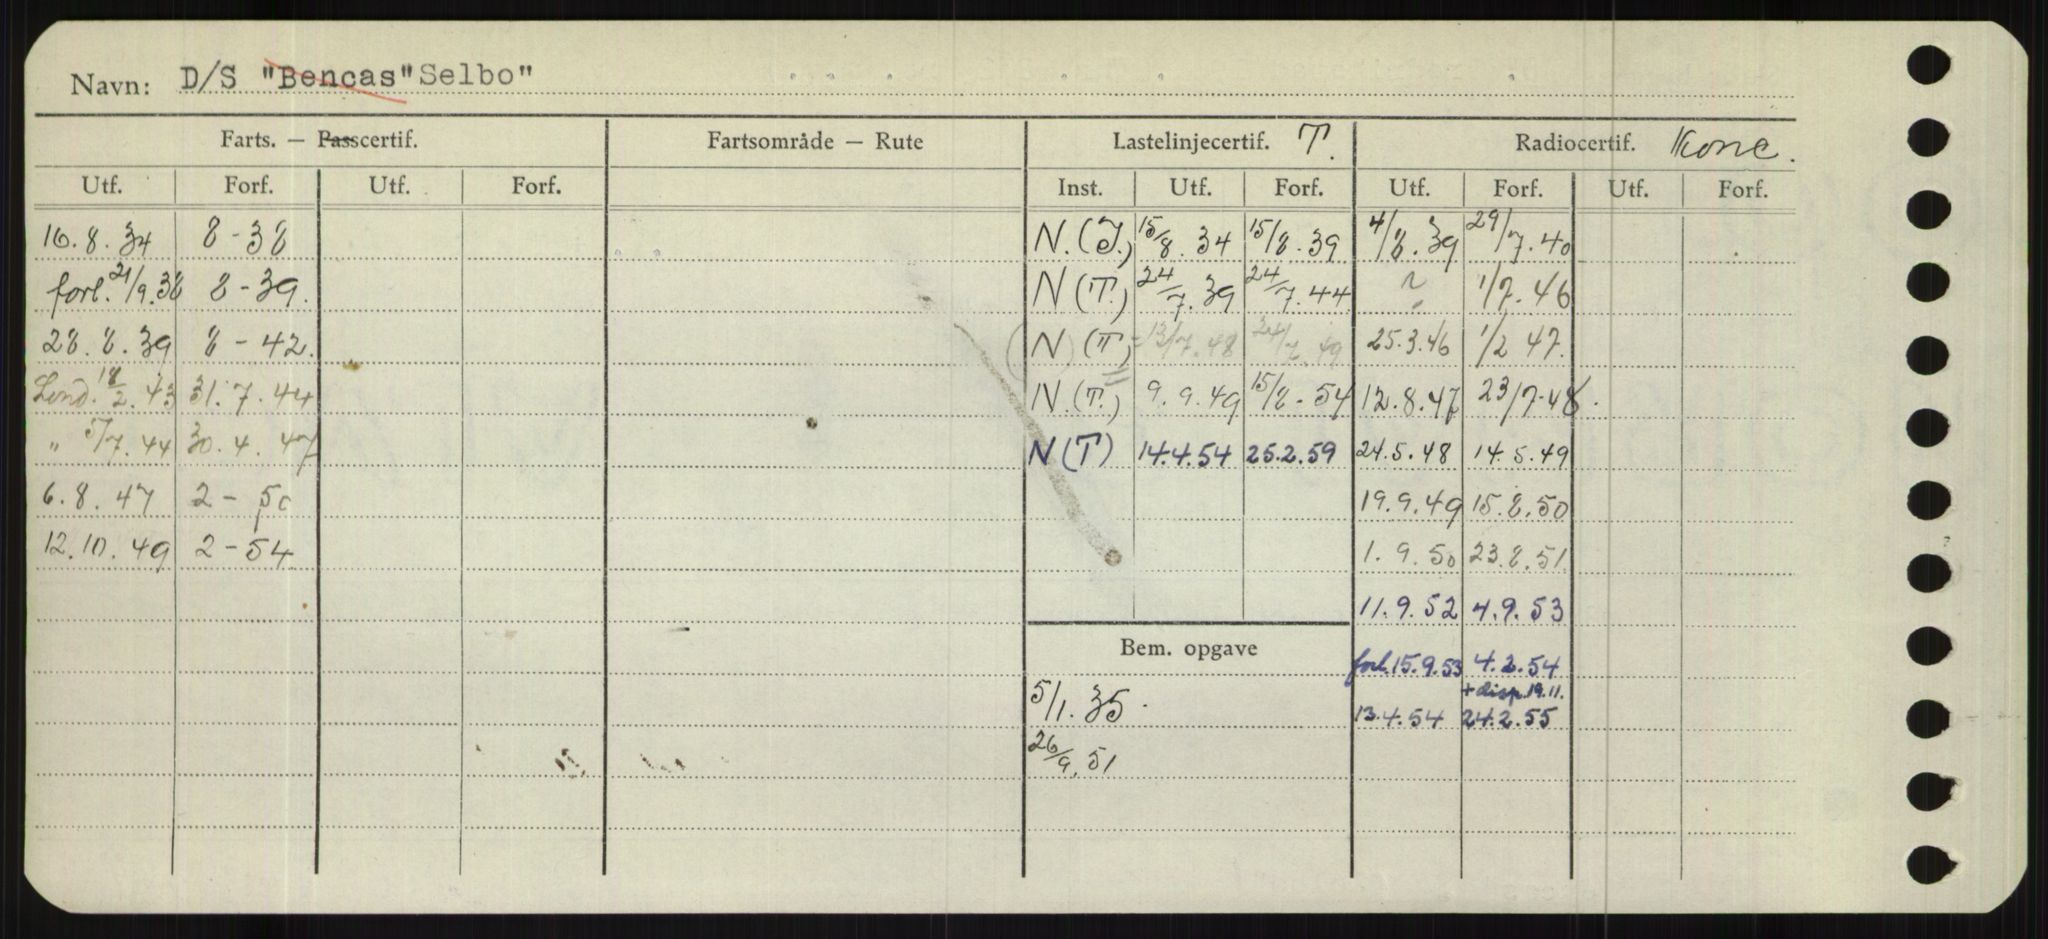 Navn: D/S "Bencas" Selbo"
Farts. — Passcertif. Fartsområde — Rute Lastelinjecertif. T. Radiocertif. Konc.
Utf. Forf. Utf. Forf. Inst. Utf. Forf. Utf. Forf. Utf. Forf.
16.8.34 8-38 N.(T.) 15/8.34 15/8.39 4/8.39 29/7.40
forl. 21/9.38 8-39. N(T.) 24/7.39 24/7.44 ? 1/2.46
28.8.39 8-42. (N)(T) 12/7.48 24/7.49 25.3.46 1/2 47.
Lond. 18/2.43 31.7.44 N.(T.) 9.9.49 15/8-54 12.8.47 23/7-48.
" 5/7.44 30.4.47 N(T) 14.4.54 25.2.59 24.5.48 14.5.49
6.8.47 2-50 19.9.49 15.8.50
12.10.49 2-54 1.9.50 23.8.51
11.9.52 4.9.53
Bem. opgave forl. 15.9.53 4.2.54
+ disp. 19.11.
5/1.35. 13.4.54 24.2.55
26/9.51